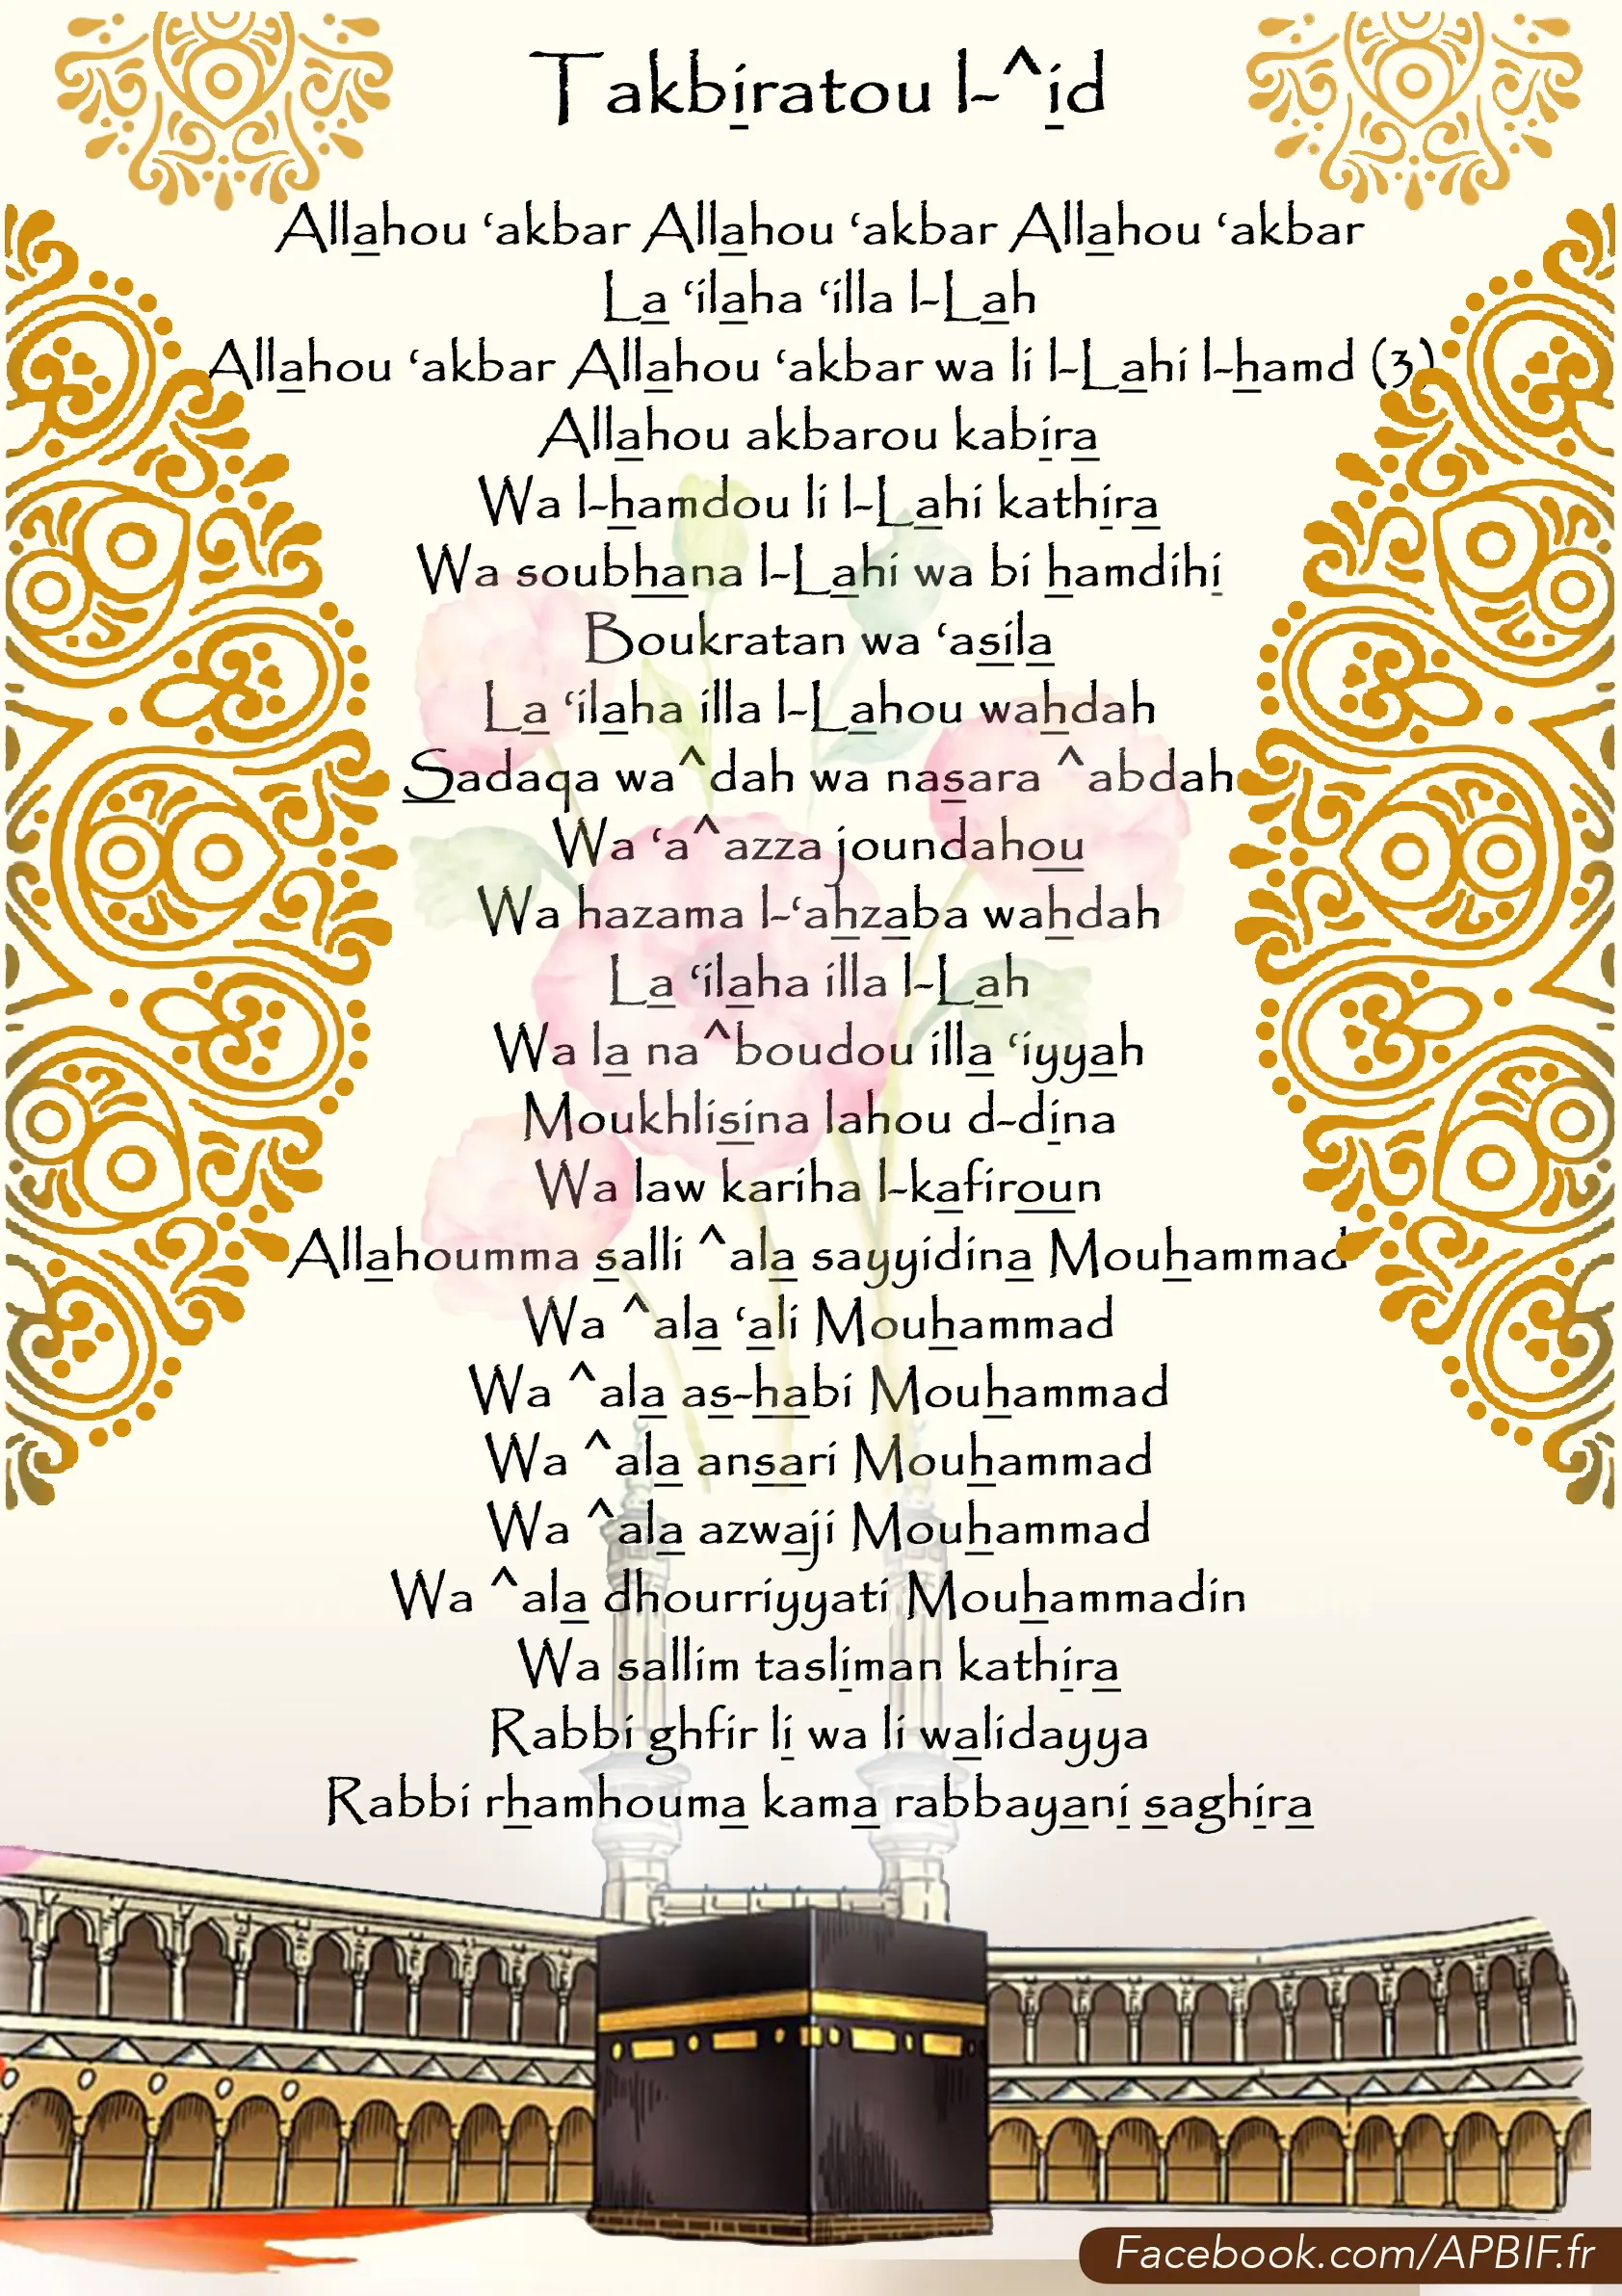 Takbiratou l-^id
Allahou ‘akbar Allahou ‘akbar Allahou ‘akbar
La ‘ilaha ‘illa l-Lah
Allahou ‘akbar Allahou ‘akbar wa li l-Lahi l-hamd (3)
Allahou akbarou kabira
Wa l-hamdou li l-Lahi kathira
Wa soubhana l-Lahi wa bi hamdihi
Boukratan wa ‘asila
La ‘ilaha illa l-Lahou wahdah
Sadaqa wa^dah wa nasara ^abdah
Wa ‘a^azza joundahou
Wa hazama l-‘ahzaba wahdah
La ‘ilaha illa l-Lah
Wa la na^boudou illa ‘iyyah
Moukhlisina lahou d-dina
Wa law kariha l-kafiroun
Allahoumma salli ^ala sayyidina Mouhammad
Wa ^ala ‘ali Mouhammad
Wa ^ala as-habi Mouhammad
Wa ^ala ansari Mouhammad
Wa ^ala azwaji Mouhammad
Wa ^ala dhourriyyati Mouhammadin
Wa sallim tasliman kathira
Rabbi ghfir li wa li walidayya
Rabbi rhamhouma kama rabbayani saghira
Facebook.com/APBIF.fr